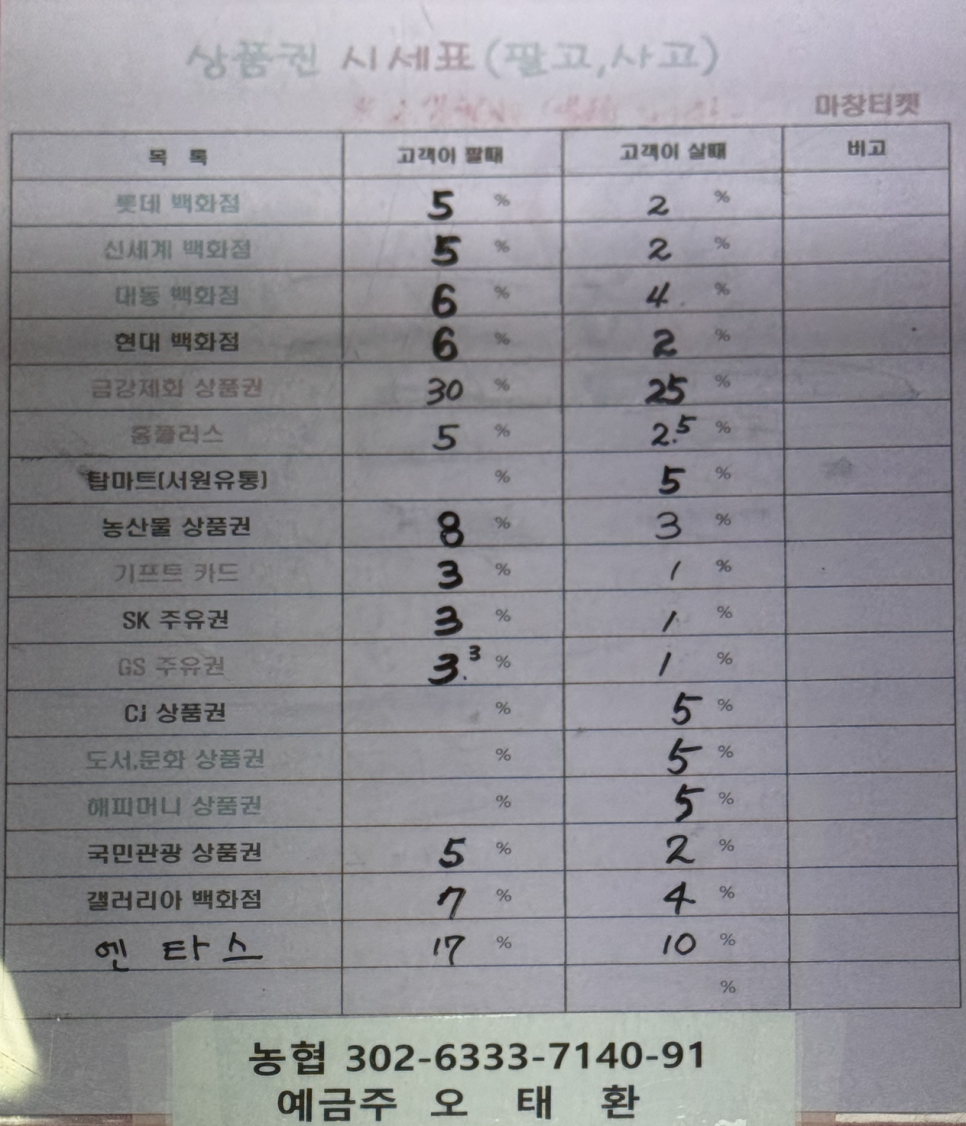 상품권 시세표(팔고,사고)
마창티켓
목 록 고객이 팔때 고객이 살때 비고
롯데 백화점 5 % 2 %
신세계 백화점 5 % 2 %
대동 백화점 6 % 4 %
현대 백화점 6 % 2 %
금강제화 상품권 30 % 25 %
홈플러스 5 % 2.5 %
탑마트(서원유통) % 5 %
농산물 상품권 8 % 3 %
기프트 카드 3 % 1 %
SK 주유권 3 % 1 %
GS 주유권 3.3 % 1 %
CJ 상품권 % 5 %
도서,문화 상품권 % 5 %
해피머니 상품권 % 5 %
국민관광 상품권 5 % 2 %
갤러리아 백화점 7 % 4 %
엔 타스 17 % 10 %
%
농협 302-6333-7140-91
예금주 오 태 환